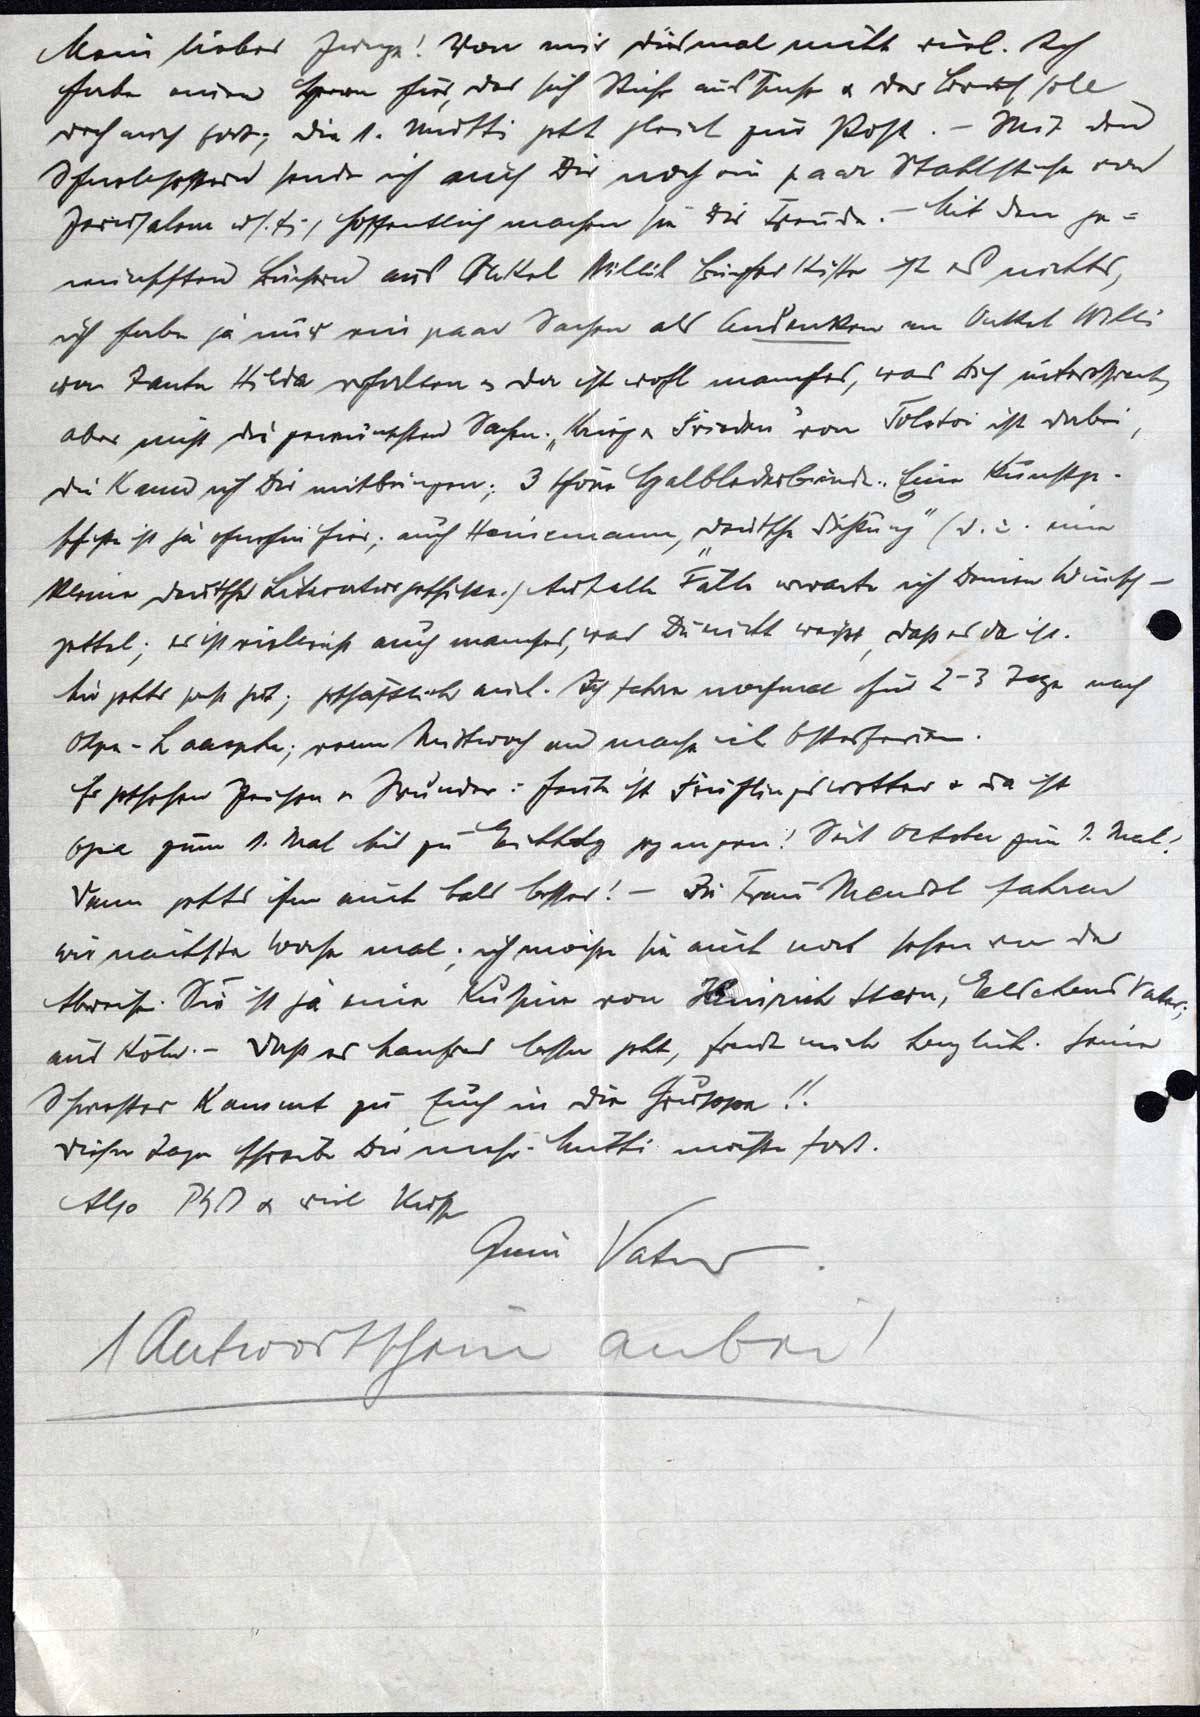 Mein lieber Junge! Von mir diesmal nicht viel. Ich
habe einen Herrn hier, der sich Stiche aussucht & der Brief soll
doch noch fort; die l. Mutti geht gleich zur Post. – Mit den
sende ich auch Dir noch ein paar Stahlstiche von
Jerusalem hoffentlich machen sie Dir Freude. – Mit den ge=
wünschten Büchern aus Onkel Willis Bücherkiste ist es nichts,
ich habe ja nur ein paar Sachen als Andenken an Onkel Willi
von Tante Hilda erhalten & da ist wohl manches, was Dich interessiert,
aber nicht die gewünschten Sachen. „Krieg & Frieden" von Tolstoi ist dabei,
die kann ich Dir mitbringen; 3 schöne Halblederbände. Eine Kunstge-
schichte ist ja ohnehin hier; auch Heinemann, „deutsche Dichtung" (d. i. eine
kleine deutsche Literaturgeschichte.) Auf alle Fälle erwarte ich Deinen Wunsch-
zettel; es ist vielleicht auch manches, was Du nicht weisst, dass es da ist.
Mir gehts sehr gut; geschäftlich auch. Ich fahre nochmal für 2-3 Tage nach
Olpe-Laasphe; vom Mittwoch an mache ich Osterferien.
Es geschehen Zeichen & Wunder: heute ist Frühlingswetter & da ist
Opa zum 1. Mal mit zu gegangen! Seit October zum 1. Mal!
Dann gehts ihm auch bald besser! – Zu Frau Mendel fahren
wir nächste Woche mal; ich möchte sie auch noch sehen vor der
Abreise. Sie ist ja eine Kusine von Heinrich Stern, Vater,
aus Köln. – Dass es Manfred besser geht, freut mich herzlich. Seine
Schwester kommt zu Euch in die Gruppe!!
Dieser Tage schreibe Dir mehr. Mutti möchte fort.
Also & viel Küsse
Dein Vater.
1 Antwortschein anbei!